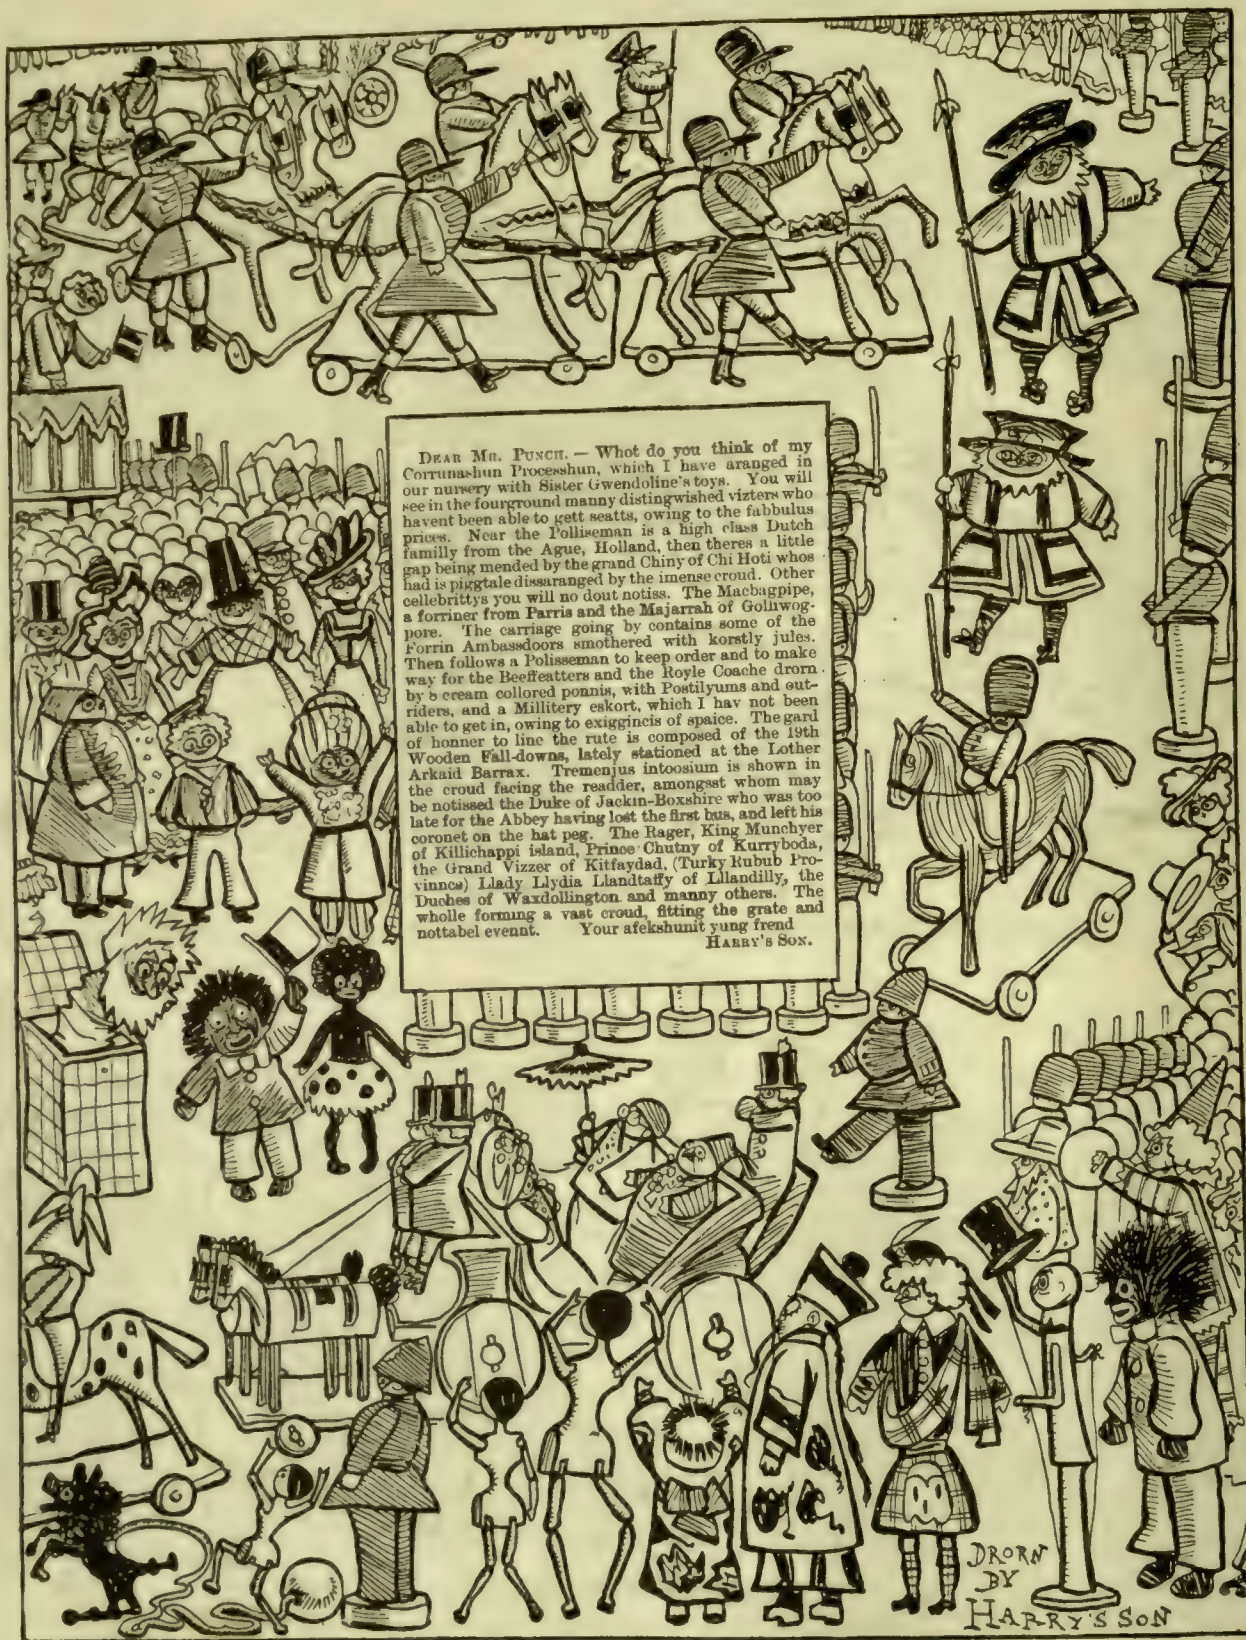 DEAR MR. PUNCH. — Whot do you think of my
Corrunashun Processhun, which I have aranged in
our nursery with Sister Gwendoline's toys. You will
see in the fourground manny distingwished vizters who
havent been able to gett seatts, owing to the fabbulus
prices. Near the Polliseman is a high class Dutch
familly from the Ague, Holland, then theres a little
gap being mended by the grand Chiny of Chi Hoti whos
had is piggtale dissaranged by the imense croud. Other
cellebrittys you will no dout notiss. The Macbagpipe,
a forriner from Parris and the Majarrah of Golliwog-
pore. The carriage going by contains some of the
Forrin Ambassdoors smothered with korstly jules.
Then follows a Polisseman to keep order and to make
way for the Beeffeatters and the Royle Coache drorn
by 8 cream collored ponnis, with Postilyums and out-
riders, and a Millitery eskort, which I hav not been
able to get in, owing to exiggincis of spaice. The gard
of honner to line the rute is composed of the 19th
Wooden Fall-downs, lately stationed at the Lother
Arkaid Barrax. Tremenjus intoosium is shown in
the croud facing the readder, amongsst whom may
be notissed the Duke of Jackin-Boxshire who was too
late for the Abbey having lost the first bus, and left his
coronet on the hat peg. The Rager, King Munchyer
of Killichappi island, Prince Chutny of Kurryboda,
the Grand Vizzer of Kitfaydad, (Turky Rubub Pro-
vinnce) Llady Llydia Llandtaffy of Lllandilly, the
Duches of Waxdollington and manny others. The
wholle forming a vast croud, fitting the grate and
nottabel evennt. Your afekshunit yung frend
HARRY'S SON.
DRORN
BY
HARRY'S SON